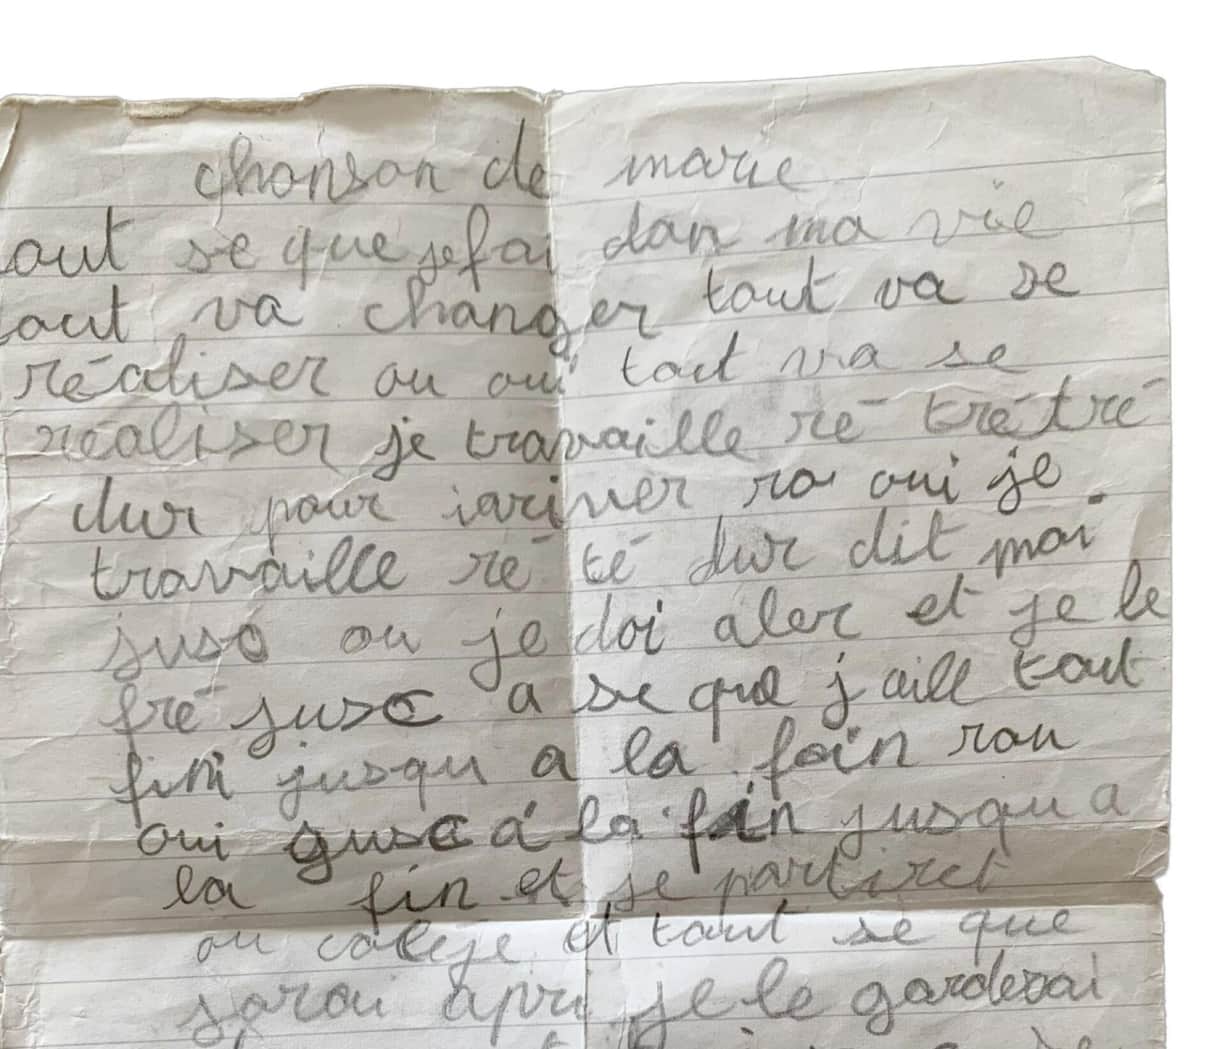 chanson de marie
out se que je fai dan ma vie
out va changer tout va se
réaliser ou oui tout va se
réaliser je travaille ré tré tré
dur pour iariver ro oui je
travaille ré té dur dit moi
jusō ou je doi aler et je le
fré jusc a se que j'aill tout
fini jusqu a la foin rou
oui gusc á la fin jusqu a
la fin et je partiret
au coleje et tout se que
jorai apri je le garderai